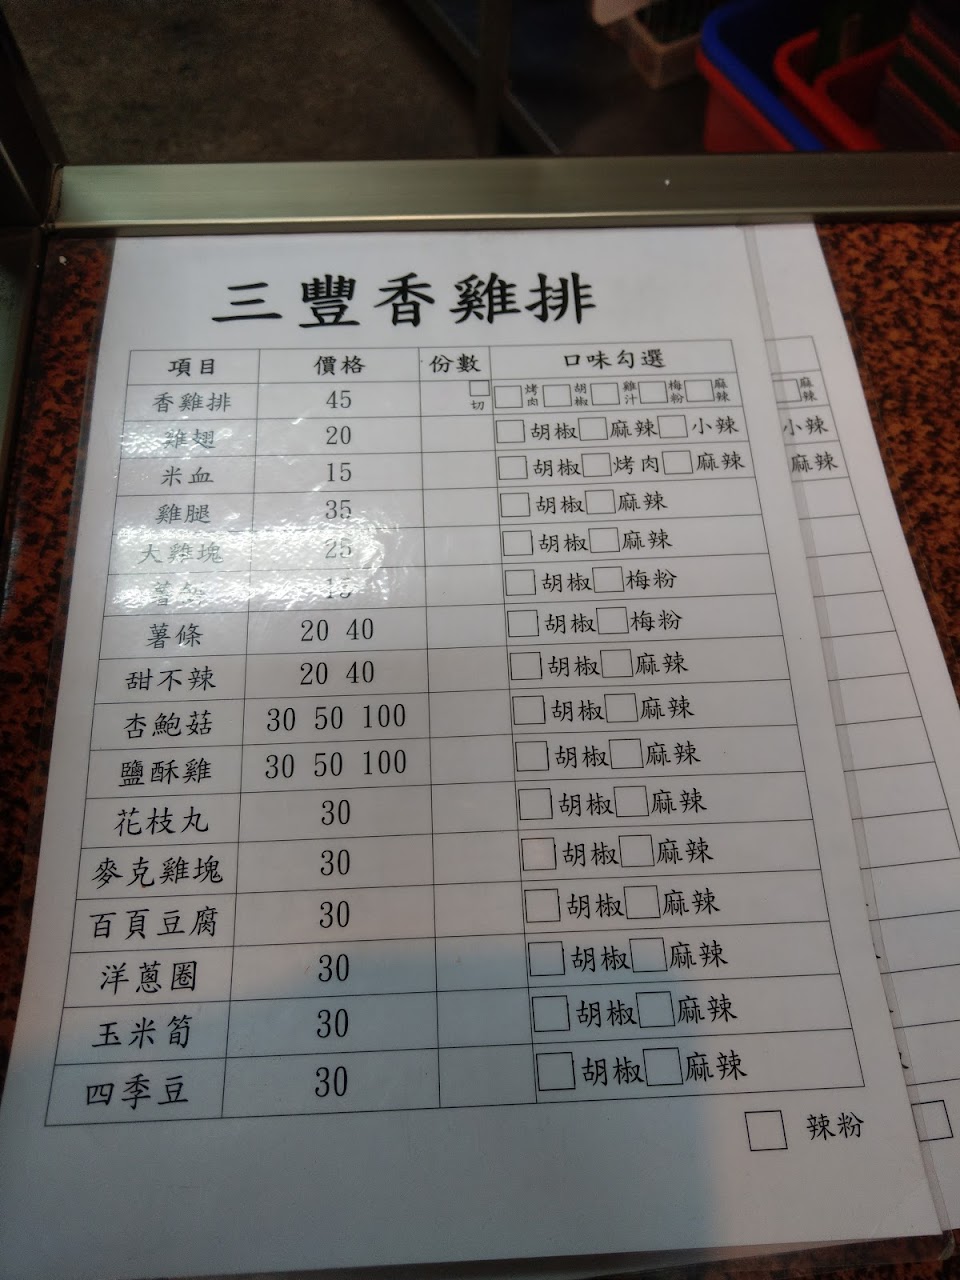 三豐香雞排
項目 價格 份數 口味勾選
香雞排 45 □切 □烤肉 □胡椒 □雞汁 □梅粉 □麻辣
雞翅 20 □胡椒 □麻辣 □小辣
米血 15 □胡椒 □烤肉 □麻辣
雞腿 35 □胡椒 □麻辣
大雞塊 25 □胡椒 □麻辣
薯 15 □胡椒 □梅粉
薯條 20 40 □胡椒 □梅粉
甜不辣 20 40 □胡椒 □麻辣
杏鮑菇 30 50 100 □胡椒 □麻辣
鹽酥雞 30 50 100 □胡椒 □麻辣
花枝丸 30 □胡椒 □麻辣
麥克雞塊 30 □胡椒 □麻辣
百頁豆腐 30 □胡椒 □麻辣
洋蔥圈 30 □胡椒 □麻辣
玉米筍 30 □胡椒 □麻辣
四季豆 30 □胡椒 □麻辣
□ 辣粉
□麻辣
小辣
麻辣